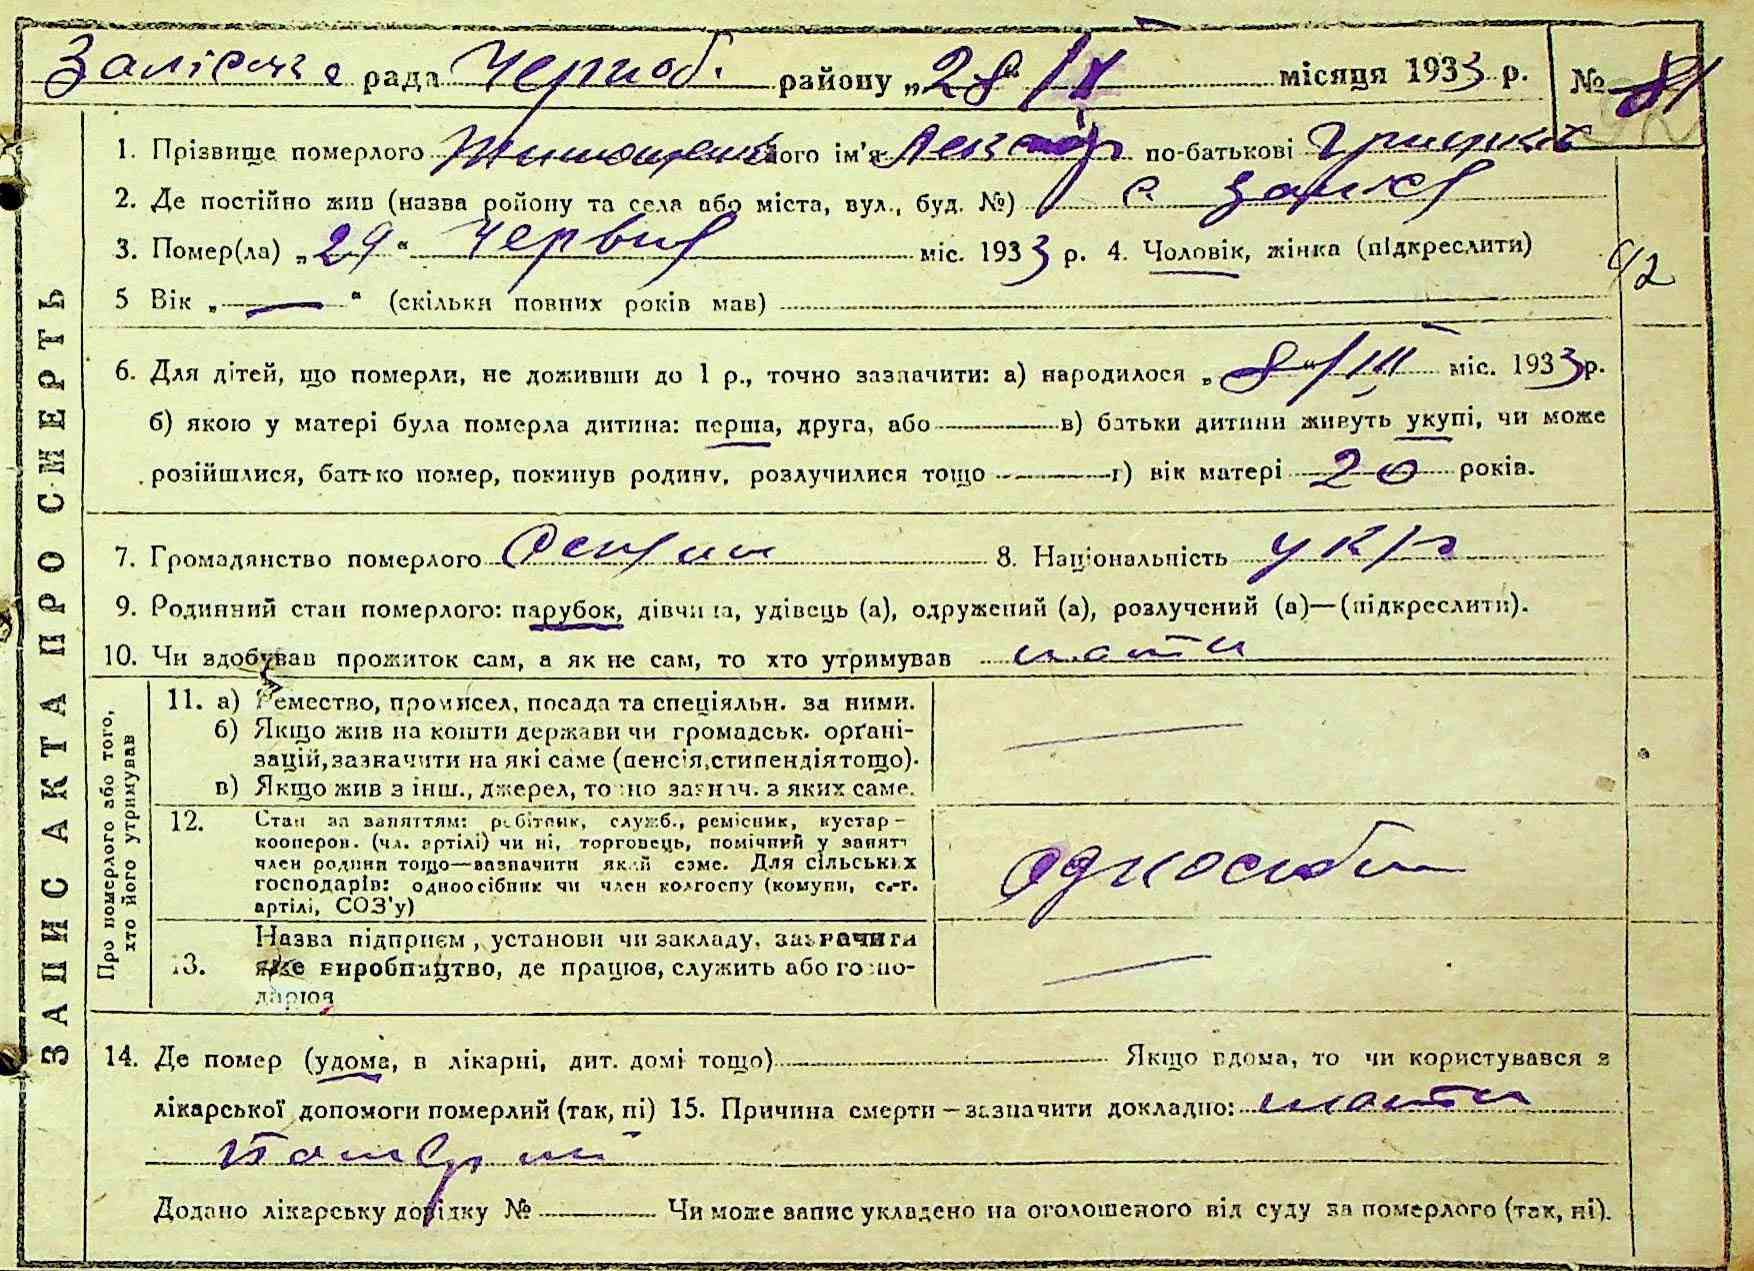 рада Черноб. району „28“ місяця 1933 р. № 81
1. Прізвище померлого його ім'я по-батькові
2. Де постійно жив (назва ройону та села або міста, вул., буд. №) с.
3. Помер(ла) „29“ Червня міс. 1933 р. 4. Чоловік, жінка (підкреслити)
5 Вік „—“ (скільки повних років мав)
6. Для дітей, що померли, не доживши до 1 р., точно зазначити: а) народилося „8“/III міс. 1933 р.
б) якою у матері була померла дитина: перша, друга, або в) батьки дитини живуть укупі, чи може
розійшлися, батько помер, покинув родину, розлучилися тощо г) вік матері 20 років.
7. Громадянство померлого 8. Національність укр
9. Родинний стан померлого: парубок, дівчина, удівець (а), одружений (а), розлучений (а)—(підкреслити).
10. Чи здобував прожиток сам, а як не сам, то хто утримував мати
ЗАПИС АКТА ПРО СМЕРТЬ
Про померлого або того,
хто його утримував
11. а) Ремество, промисел, посада та спеціяльн. за ними.
б) Якщо жив на кошти держави чи громадськ. орґані-
зацій, зазначити на які саме (пенсія, стипендія тощо).
в) Якщо жив з інш., джерел, точно зазнач. з яких саме.
12. Стан за заняттям: робітник, служб., ремісник, кустар—
кооперов. (чл. артілі) чи ні, торговець, помічний у занятт
член родини тощо—зазначити який саме. Для сільських
господарів: одноосібник чи член колгоспу (комуни, с.-г.
артілі, СОЗ'у)
одноособн
13. Назва підприєм, установи чи закладу, зазначити
яке виробництво, де працюв, служить або госпо-
дарюв
14. Де помер (удома, в лікарні, дит. домі тощо) Якщо вдома, то чи користувався з
лікарської допомоги померлий (так, ні) 15. Причина смерти—зазначити докладно:
Додано лікарську довідку № Чи може запис укладено на оголошеного від суду за померлого (так, ні).